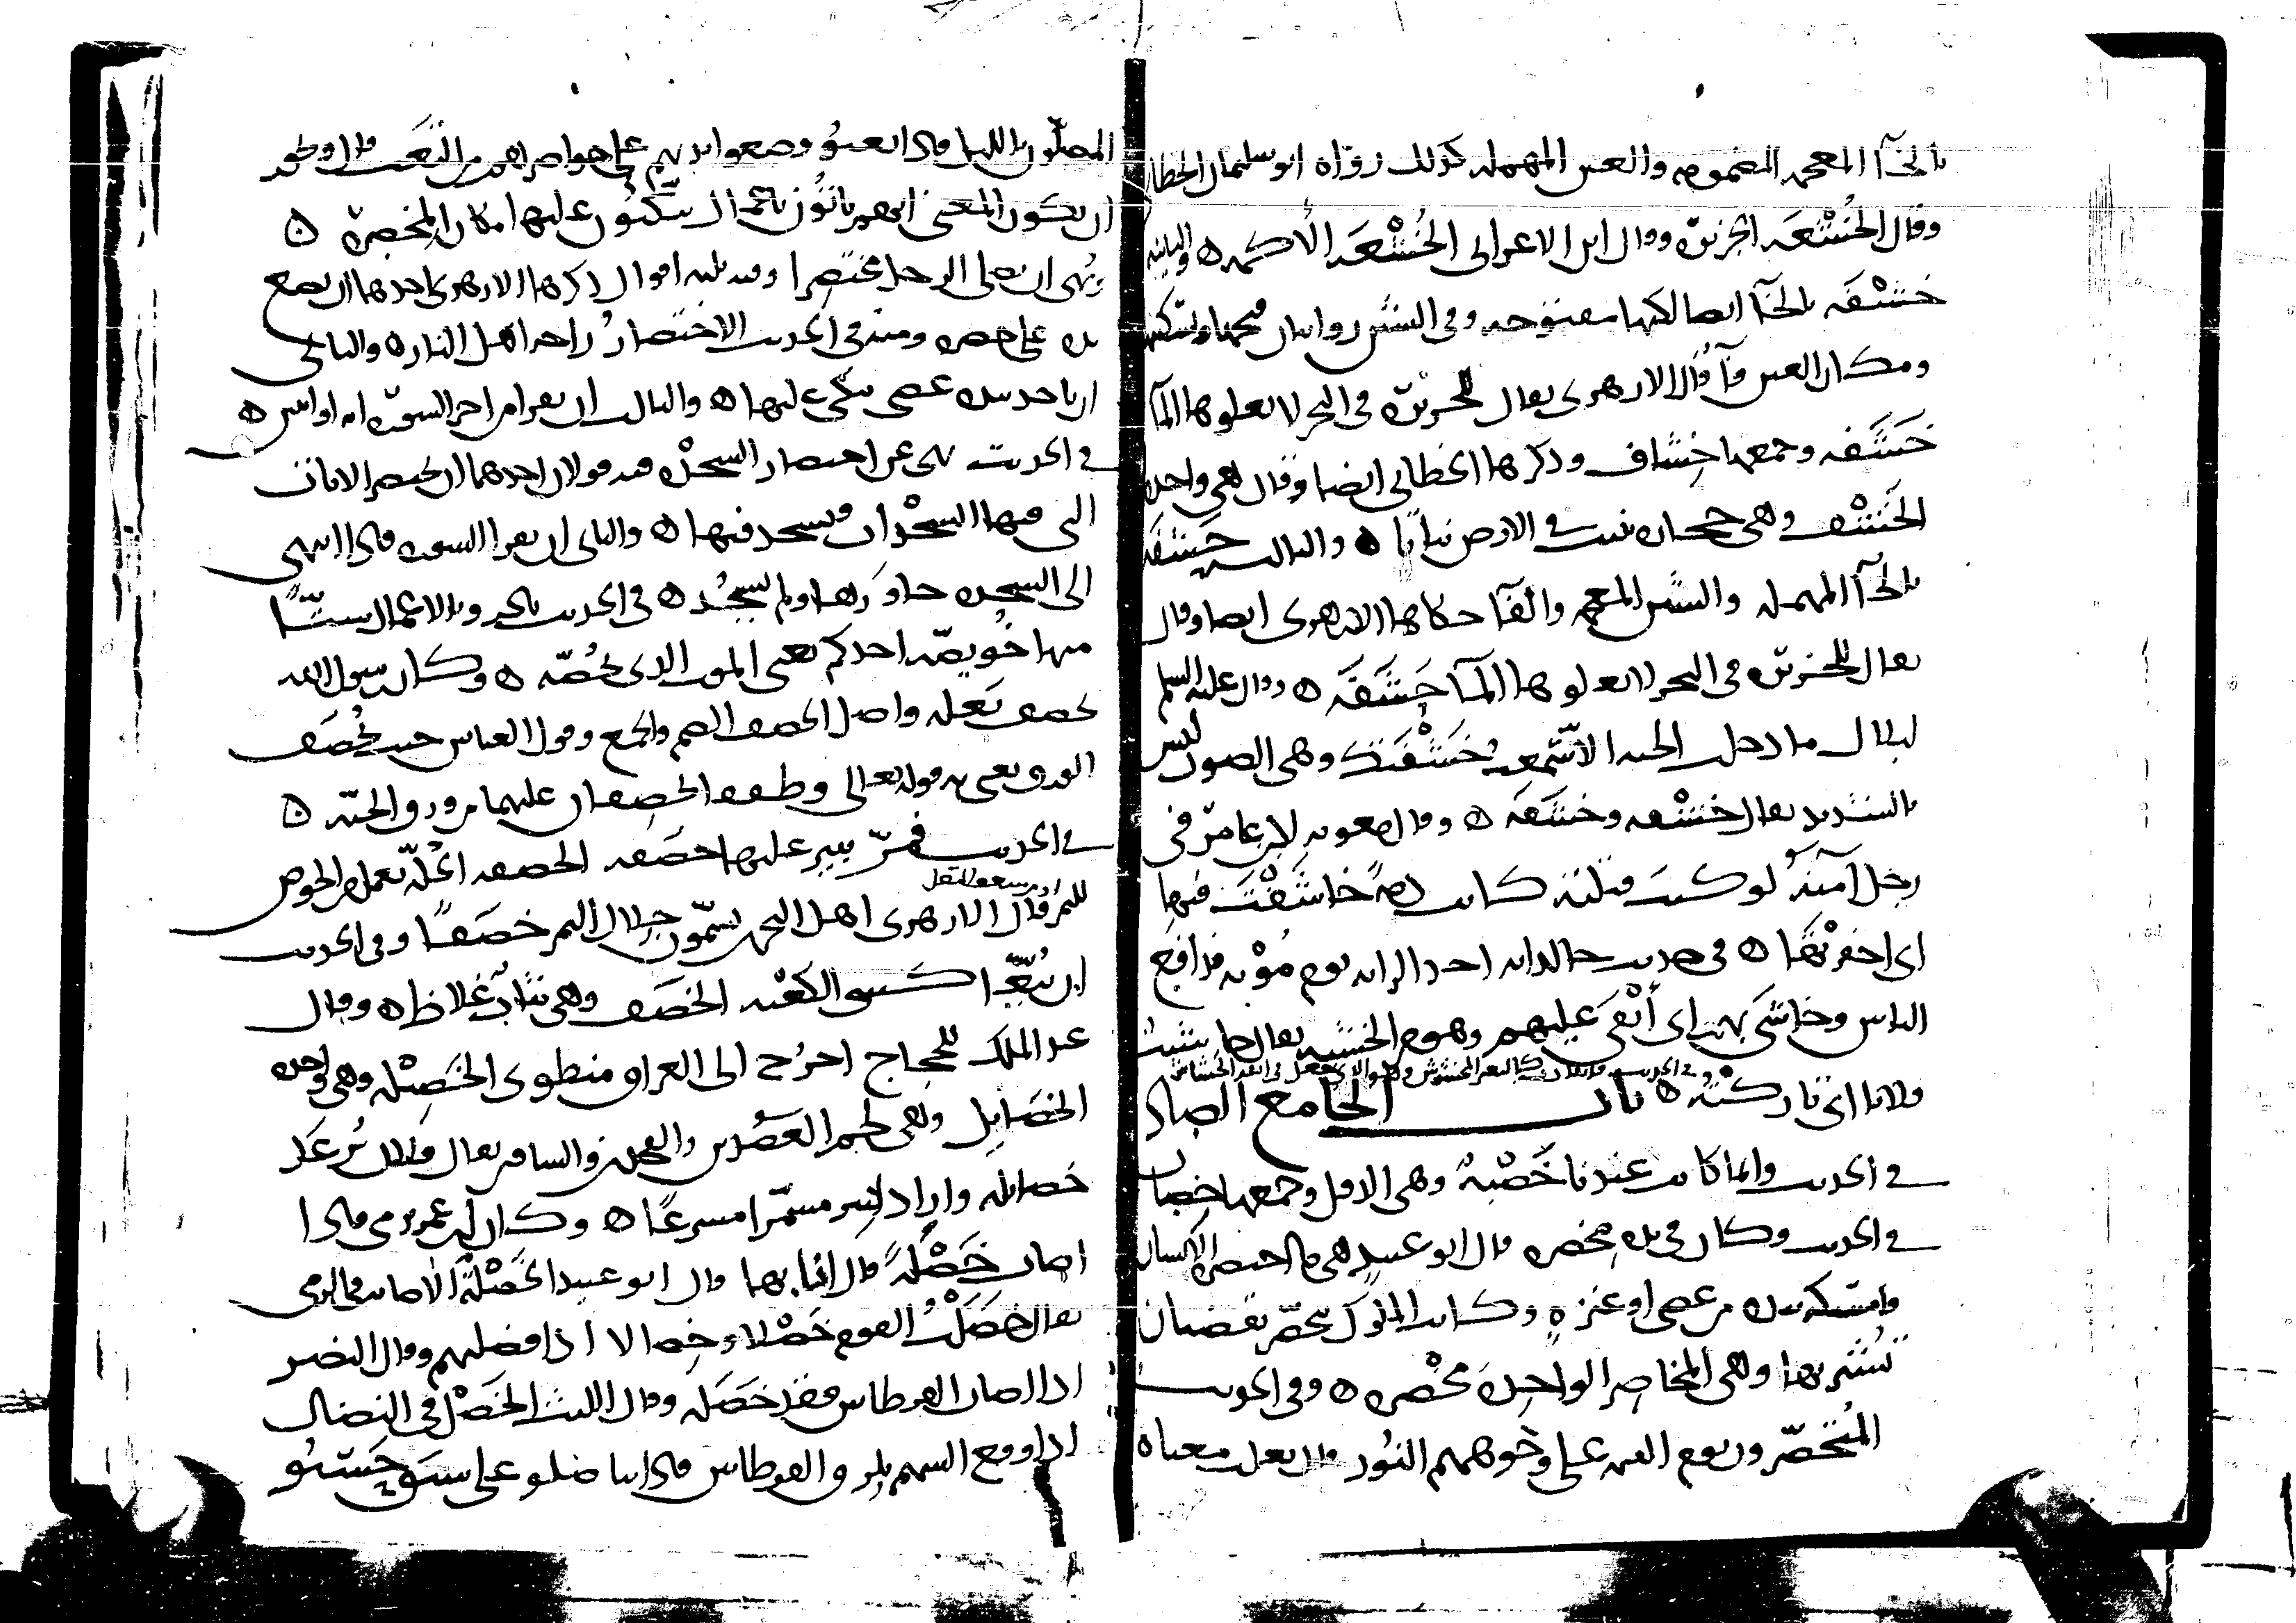 بالخآ المعجمه المضمومه والعين المهمله كذلك رواه ابو سليمان الخطابي
وقال الخُشْعَه الجزيرة وقال ابن الاعرابي الخُشْعَه الأكمه ه والثانيه
خشْفَه بالخآ ايضا لكنها مفتوحه وفي الشين روايتان فتحها وتسكينها
ومكان العين فآ قال الازهري يقال للجزيرة في البحر لا يعلوها المآ
خَشَفه وجمعها خِشاف وذكرها الخطابي ايضا وقال هي واحدة
الخَشَف وهي حجارة تنبت في الارض نباتًا ه والثالث حَشَفَه
بالحآ المهمله والشين المعجمه والفآ حكاها الازهري ايضا وقال
يقال للجزيرة في البحر لا يعلوها المآ حَشَفَه ه وقال عليه السلم
لبلال ما دخلت الجنه الا سمعت خَشْفَتَك وهي الصوت ليس
بالشديد يقال خَشْفه وخَشَفَه ه وقال معويه لابن عامر في
رجل آمنه لو كنت قتلته كانت ذمةً خاشَفْتَ فيها
اي اخفرتها ه في حديث خالد انه اخذ الرايه يوم مُؤْته فدافع
الناس وخاشَى بهم اي أَبْقَى عليهم وهو من الخشيه يقال خاشيت
فلانا اي تاركته ه باب الخا مع الصاد
في الحديث وانما كانت عندنا خَصْبَةٌ وهي الدقل وجمعها خِصاب
في الحديث وكان في يده مخصره قال ابو عبيد هي ما اختصره الانسان
وامسكه بيده من عصى او عنزه وكانت الملوك تتخصّر بقضبان
تُشير بها وهي المخاصر الواحدة مخْصره ه وفي الحديث
المُتَخصّرون يوم القيمه على وُجوههم النُور قال ثعلب معناه
المصلّون بالليل فاذا تعبوا وضعوا ايديهم على خواصرهم من التعَب قال وقد
ان يكون المعنى انهم ياتون باعمال يتّكئون عليها مكان المخصرة ه
ونُهى ان يصلى الرجل مختصِرا وفيه ثلثه اقوال ذكرها الازهري احدها ان يضع
يده على خصره ومنه في الحديث الاختصارُ راحه اهل النار ه والثاني
ان ياخذ بيده عصى يتكي عليها ه والثالث ان يقرا من اخر السورة ايه او ايتين ه
في الحديث نهى عن اختصار السجْدة فيه قولان احدهما ان يختصر الايات
التي فيها السجْدات فيسجد فيها ه والثاني ان يقرا السورة فاذا انتهى
الى السجده جاوَزها ولم يسجُد ه في الحديث بادروا بالاعمال ستًّا
منها خُوَيصّه احدكم يعني الموت الذي يخُصّه ه وكان رسول الله
يخصف نَعله واصل الخصف الضم والجمع وقول العباس حيث يُخصَف
الورق يعني به قوله تعالى وطفقا يخصِفان عليهما من ورق الجنّه ه
في الحديث فمرّ ببير عليها خصَفه الخصفه الجُلّه تعمل من الخوص
للتمر قال الازهري اهل البحرين يسمّون جِلال التمر خصَفًا وفي الحديث
ان تُبّعًا كسى الكعْبه الخصَف وهي ثيابٌ غلاظ ه وقال
عبد الملك للحجاج اخرُج الى العراق منطوى الخَصِيْله وهي واحدة
الخصَايل وهي لحم العضُدين والفخذين والساقين يقال فلان تُرعَد
خصايله واراد سِر مشمّرا مسرعًا ه وكان ابن عمر يرمي فاذا
اصاب خَصْلَةً قال انا بها قال ابو عبيد الخَصْلَة الاصابه في الرمي
يقال خصَلْتُ القوم خَصْلا وخِصالا اذا فضلتهم وقال النضر
اذا اصاب القرطاس فقد خَصَله وقال الليث الخَصْل في النضال
اذا وقع السهم بلزق القرطاس فاذا تناضلوا على سَبَق حَسَبُوا